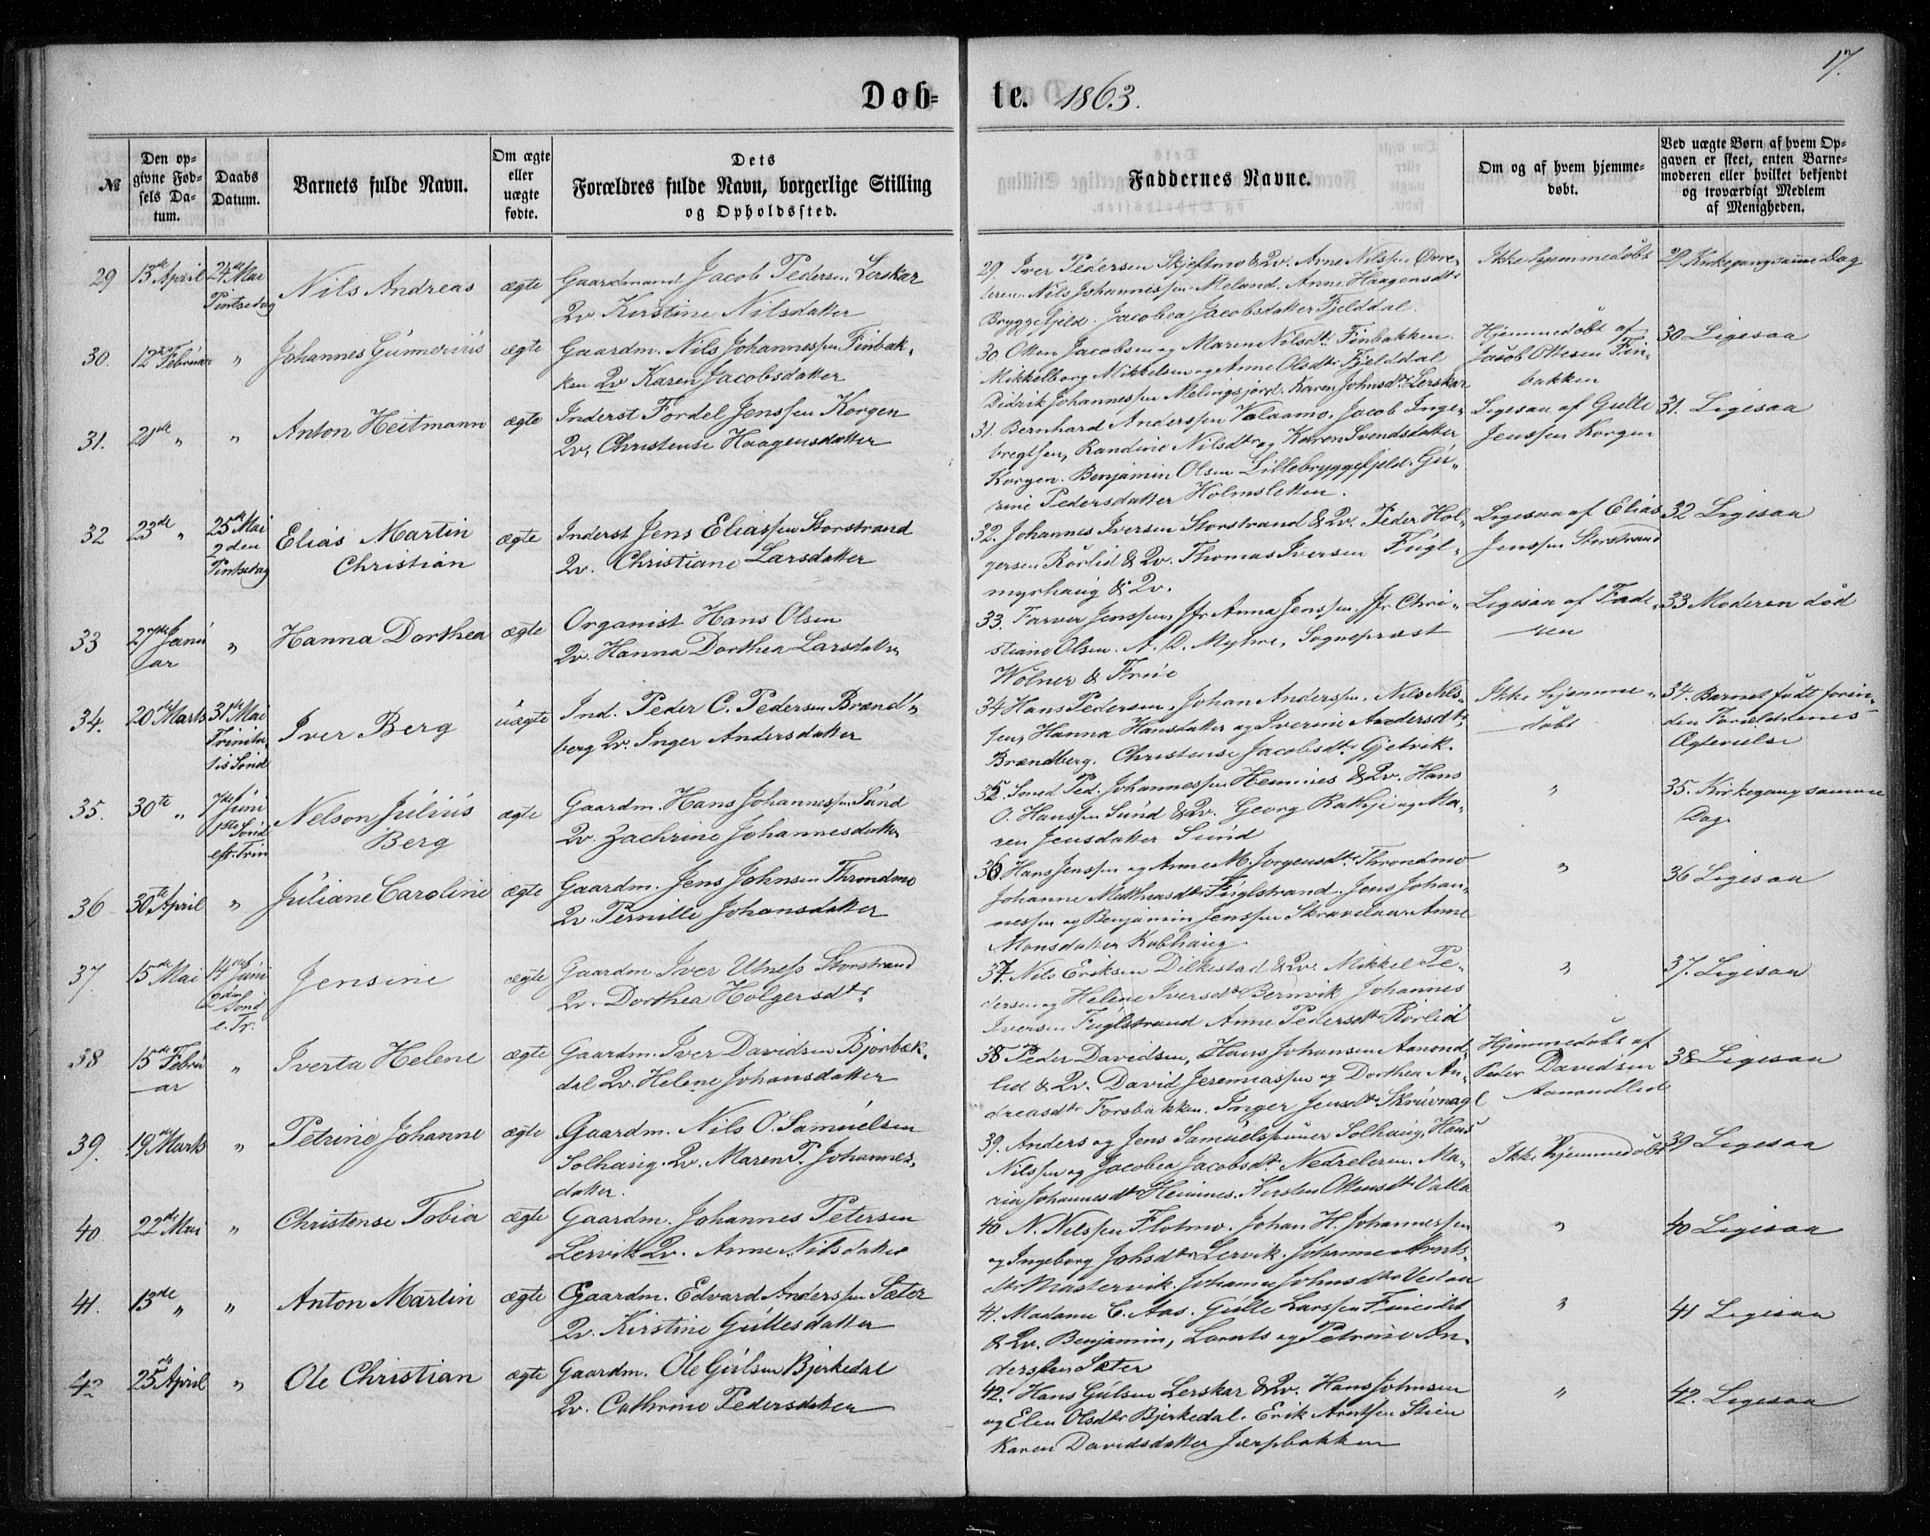 17.
Døb-
te. 1863.
№
Den op-
givne Fød-
sels Da-
tum.
Daabs
Datum.
Barnets fulde Navn.
Om ægte
eller
uægte
fødte.
Dets
Forældres fulde Navn, borgerlige Stilling
og Opholdssted.
Faddernes Navne.
Om og af hvem hjemme-
døbt.
Ved uægte Børn af hvem Op-
gaven er skeet, enten Barne-
moderen eller hvilket bekjendt
og troværdigt Medlem
af Menigheden.
29 13de April 24de Mai
Pintsedag
Nils Andreas
ægte
Gaardmand Jacob Pedersen Lerskar
Qv. Kirstine Nilsdatter
29. Iver Pedersen Skjeftmo & Qv. Anne Nilssen Øvre-
leren. Nils Johannessen Meland. Anne Haagensdtr
Bryggefjeld. Jacobea Jacobsdatter Fjelddal.
Ikke hjemmedøbt
29. Kirkegang samme Dag
30. 12te Februar "
Johannes Gunnerius
ægte
Gaardm. Nils Johannessen Finbak-
ken Qv. Karen Jacobsdatter
30. Otten Jacobsen og Maren Nilsdtr Finbakken.
Mikkelborg Mikkelsen og Anne Olsdtr Fjelddal
Didrik Johannessen Melingsjord. Karen Johnsdtr Lerskar
Hjemmedøbt af
Jacob Ottesen Fin-
bakken
30 Ligesaa
31. 21de " "
Anton Heitmann
ægte
Inderst Fordel Jenssen Korgen
Qv. Christense Haagensdatter
31. Bernhard Anderssen Valaamo. Jacob Inge-
bregtsen, Randine Nilsdtr og Karen Svendsdatter
Korgen. Benjamin Olsen Lillebryggefjeld. Gu-
rine Pedersdatter Holmsletten.
Ligesaa af Gulle
Jenssen Korgen
31. Ligesaa
32 23de " 25de Mai
2den
Pintsedag
Elias Martin
Christian
ægte
Inderst Jens Eliassen Storstrand
Qv. Christiane Larsdatter
32. Johannes Iversen Storstrand & Qv. Peder Hol-
gersen Rørlid & Qv. Thomas Iversen Fugl-
myrhaug & Qv.
Ligesaa af Elias
Jenssen Storstrand
32 Ligesaa
33 27de Janu
ar "
Hanna Dorthea
ægte
Organist Hans Olsen
Qv. Hanna Dorthea Larsdatter
33. Farver Jenssen, Jfr Anna Jenssen. Jfr Chri-
stiane Olsen. A. D. Myhre, Sognepræst
Wolner & Frue
Ligesaa af Fade-
ren
33 Moderen død
34. 20de Marts 31te Mai
Trinita-
tis Sønd
Iver Berg
uægte
Ind. Peder C. Pedersen Brænd-
berg Qv. Inger Andersdatter
34 Hans Pedersen, Johan Anderssen, Nils Nils-
sen, Hanna Hansdatter og Iverine Andersdtr
Brændberg. Christense Jacobsdtr Gjetvik.
Ikke hjemme-
døbt
34. Barnet født forin-
den Forældrenes
Ægtevielse
35. 30te " 7de Juni
1ste Sønd
eft. Trin
Nelson Julius
Berg
ægte
Gaardm. Hans Johannessen Sund
Qv. Zachrine Johannesdatter
35. Smed Ped. Johannessen Hemnes & Qv. Hans
O. Hanssen Sund & Qv. Georg Rathje og Ma-
ren Jensdatter Sund
"
35. Kirkegang samme
Dag.
36 30te April "
Juliane Caroline
ægte
Gaardm. Jens Johnsen Throndmo
Qv. Pernille Johansdatter
36 Hans Jenssen og Anne M. Jørgensdtr Throndmo
Johanne Matthiasdtr Fuglstrand. Jens Johan-
nessen og Benjamin Jenssen Skravlaa Anne
Monsdatter Kobhaug
"
36 Ligesaa
37. 15de Mai 14de Juni
2den Sønd
e. Tr.
Jensine
ægte
Gaardm. Iver Utness Storstrand
Qv. Dorthea Holgersdtr
37. Nils Eriksen Dilkestad & Qv. Mikkel Pe-
dersen og Helene Iversdtr Bernvik Johannes
Iversen Fuglstrand Anne Pedersdtr Rørlid
"
37. Ligesaa
38 15de Febru
ar "
Iverta Helene
ægte
Gaardm. Iver Davidsen Bjørbæk-
dal Qv. Helene Johansdatter
38 Peder Davidsen, Hans Johansen Aanond-
lid & Qv. David Jeremiassen og Dorthea An-
dreasdtr Forsbakken. Inger Jensdtr Skruvnagl
Hjemmedøbt af
Peder Davidsen
Aanondlid
38 Ligesaa
39. 19de Marts "
Petrine Johanne
ægte
Gaardm. Nils O. Samuelsen
Solhaug. Qv. Maren P. Johannes-
datter.
39. Anders og Jens Samuelssønner Solhaug, Hans
Nilssen og Jacobea Jacobsdtr Nedreleren. Ma-
ria Johannesdtr Hemnes. Kirsten Ottensdtr Valla
Ikke hjemmedøbt
39 Ligesaa
40 22de Mai "
Christense Tobia
ægte
Gaardm. Johannes Petersen
Lervik Qv. Anne Nilsdatter
40 N. Nilssen Flotmo. Johan H. Johannessen
og Ingeborg Johsdtr Lervik. Johanne Arnts-
dtr Mastervik. Johanne Johnsdtr Vedaa
"
40 Ligesaa
41. 13de " "
Anton Martin
ægte
Gaardm. Edvard Anderssen Sæter
Qv. Kirstine Gullesdatter
41. Madame C. Aas. Gulle Larssen
& Qv. Benjamin, Lornts og Petrine An-
derssen Sæter
"
41 Ligesaa
42 25de April "
Ole Christian
ægte
Gaardm. Ole Gulsen Bjerkedal
Qv. Cathrine Pedersdatter
42. Hans Gulsen Lerskar & Qv. Hans Johnsen
og Elen Olsdtr Bjerkedal. Erik Arntsen Stien
Karen Davidsdatter Jerpbakken
"
42. Ligesaa